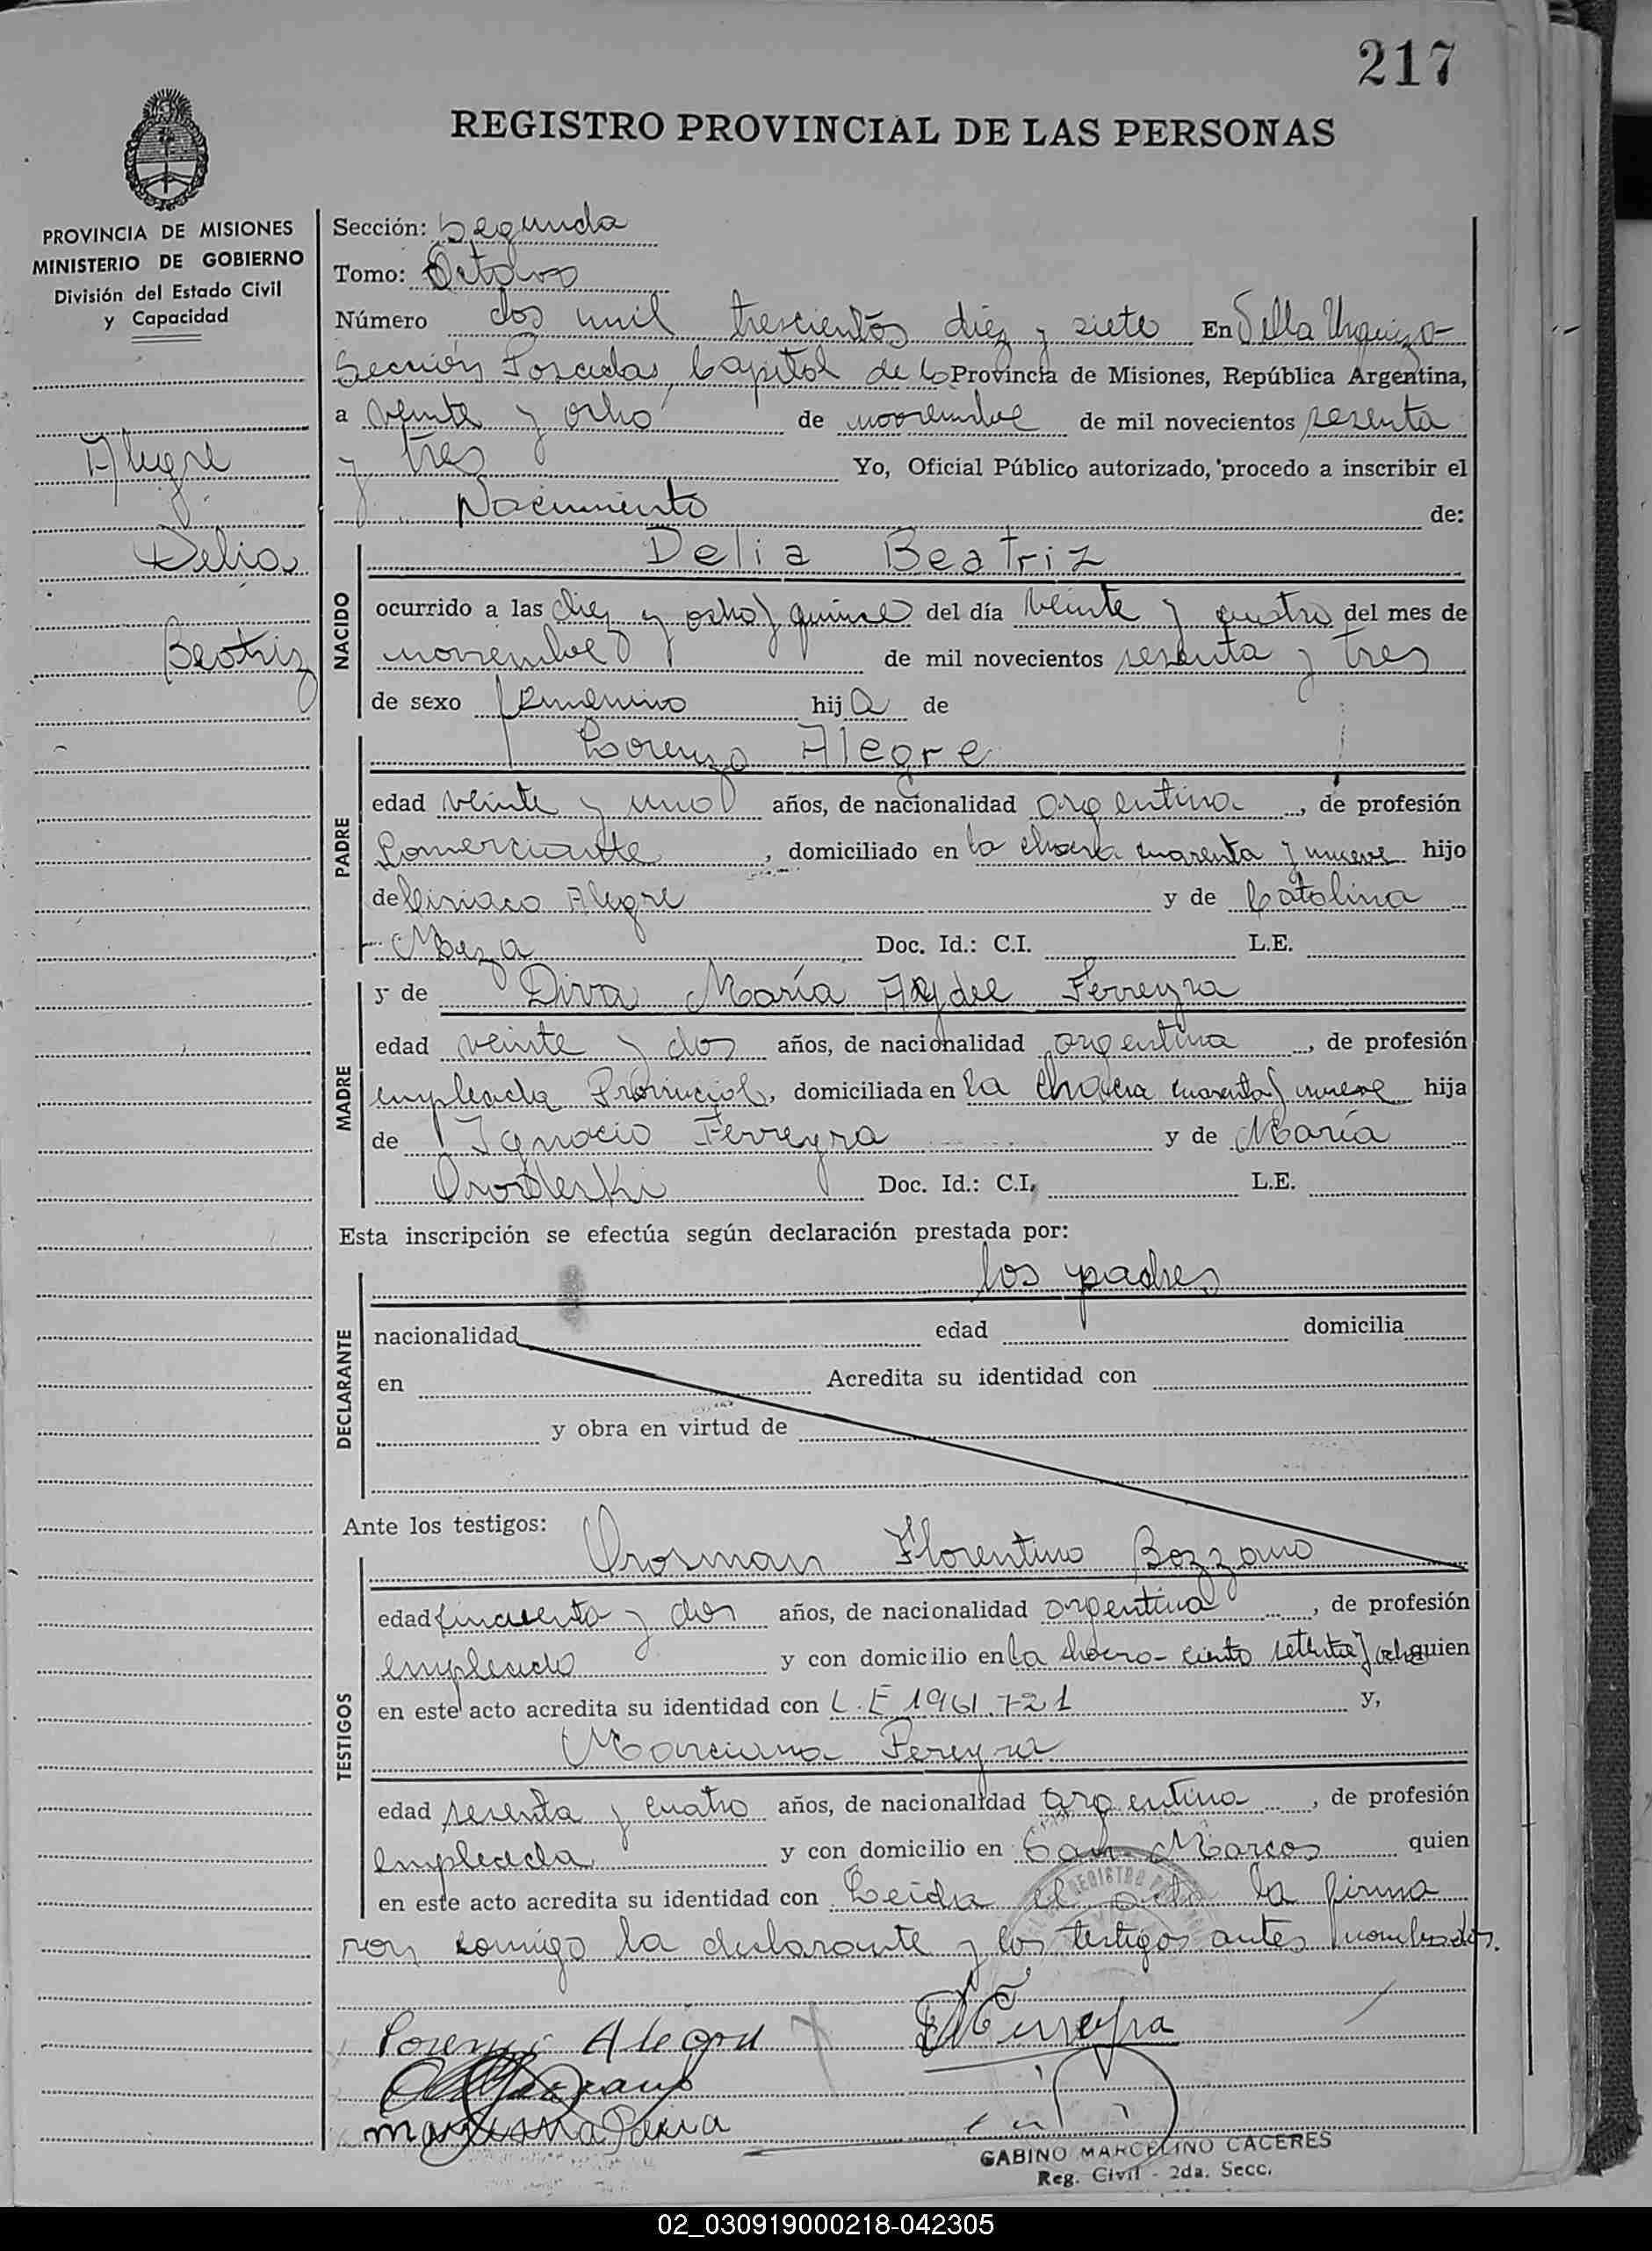 217
REGISTRO PROVINCIAL DE LAS PERSONAS
PROVINCIA DE MISIONES
MINISTERIO DE GOBIERNO
División del Estado Civil
y Capacidad
Alegre
Delia
Beatriz
Sección: Segunda
Tomo: Octavo
Número dos mil trescientos diez y siete En Villa Urquiza
Sección Posadas, Capital de la Provincia de Misiones, República Argentina,
a veinte y ocho de noviembre de mil novecientos sesenta
y tres Yo, Oficial Público autorizado, procedo a inscribir el
Nacimiento de:
NACIDO
Delia Beatriz
ocurrido a las diez y ocho y quince del día veinte y cuatro del mes de
noviembre de mil novecientos sesenta y tres
de sexo femenino hija de
PADRE
Lorenzo Alegre
edad veinte y uno años, de nacionalidad argentina, de profesión
Comerciante, domiciliado en la chacra cuarenta y nueve hijo
de Ciriaco Alegre y de Catalina
Meza Doc. Id.: C.I. L.E.
MADRE
y de Diva María Aydee Ferreyra
edad veinte y dos años, de nacionalidad argentina, de profesión
empleada Provincial, domiciliada en la chacra cuarenta y nueve hija
de Ignacio Ferreyra y de María
Doc. Id.: C.I. L.E.
Esta inscripción se efectúa según declaración prestada por:
los padres
DECLARANTE
nacionalidad edad domicilia
en Acredita su identidad con
y obra en virtud de
Ante los testigos:
TESTIGOS
Orosman Florentino Bozzano
edad cincuenta y dos años, de nacionalidad argentina, de profesión
empleado y con domicilio en la chacra- ciento setenta y ocho quien
en este acto acredita su identidad con L.E 1961.721 y,
Marciana Pereyra
edad sesenta y cuatro años, de nacionalidad argentina, de profesión
empleada y con domicilio en San Marcos quien
en este acto acredita su identidad con Leida el acta la firma
ron comigo la declarante y los testigos antes nombrados.
Lorenzo Alegre
GABINO MARCELINO CACERES
Reg. Civil - 2da. Secc.
02_030919000218-042305